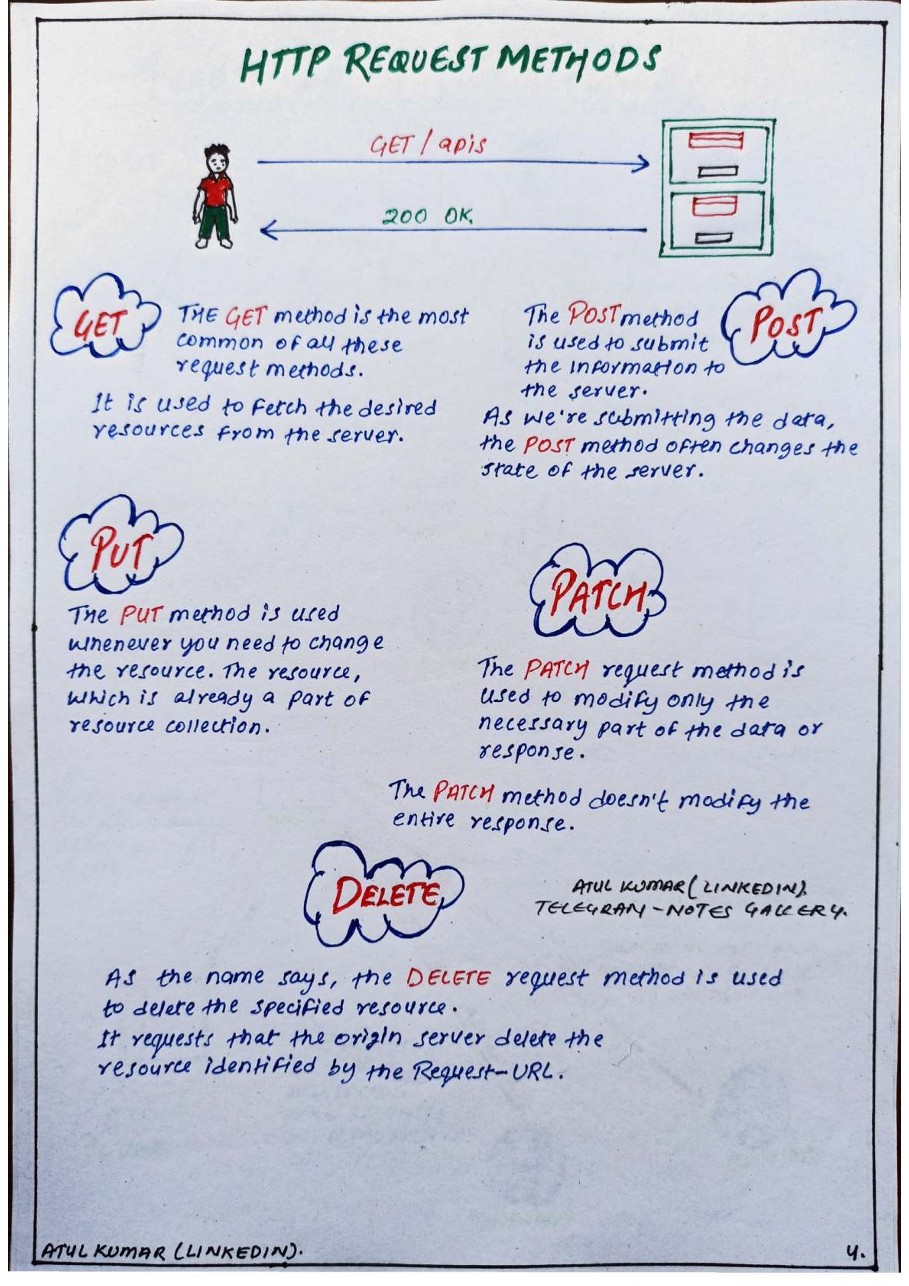 HTTP REQUEST METHODS
GET / apis
200 OK
GET
THE GET method is the most
common of all these
request methods.
It is used to fetch the desired
resources from the server.
POST
The POST method
is used to submit
the information to
the server.
As we're submitting the data,
the POST method often changes the
state of the server.
PUT
The PUT method is used
whenever you need to change
the resource. The resource,
which is already a part of
resource collection.
PATCH
The PATCH request method is
used to modify only the
necessary part of the data or
response.
The PATCH method doesn't modify the
entire response.
DELETE
ATUL KUMAR (LINKEDIN).
TELEGRAM - NOTES GALLERY.
As the name says, the DELETE request method is used
to delete the specified resource.
It requests that the origin server delete the
resource identified by the Request-URL.
ATUL KUMAR (LINKEDIN).
4.